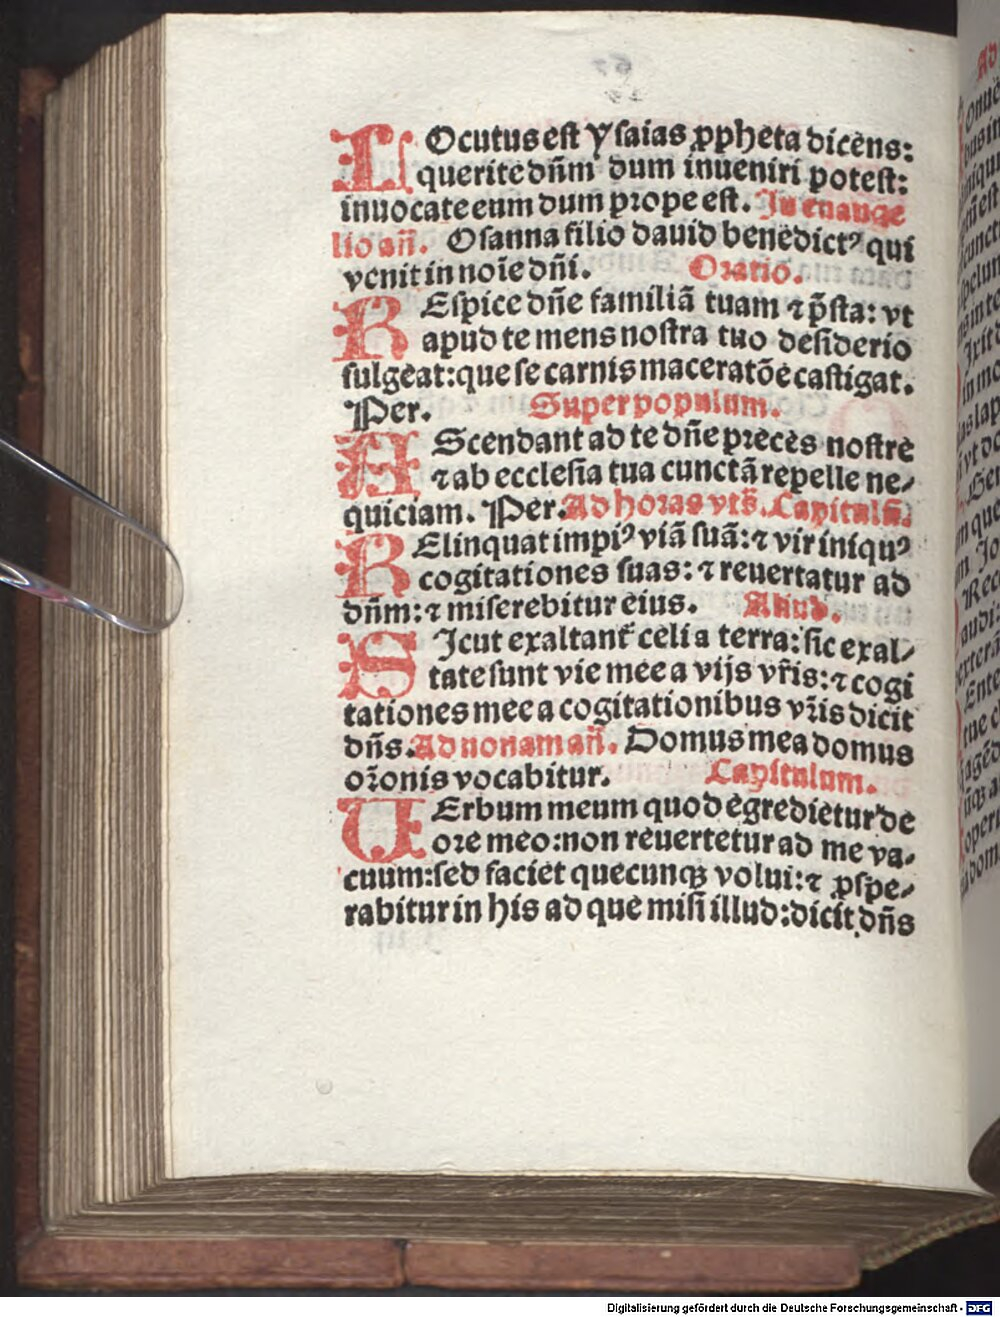 LOcutus est Ysaias ꝓpheta dicens:
querite dñm dum inueniri potest:
inuocate eum dum prope est. In euange
lio añ. Osanna filio dauid benedictꝰ qui
venit in noīe dñi. Oratio.
REspice dñe familiā tuam ⁊ p̄sta: vt
apud te mens nostra tuo desiderio
fulgeat: que se carnis maceratōe castigat.
Per. Super populum.
AScendant ad te dñe preces nostre
⁊ ab ecclesia tua cunctā repelle ne⸗
quiciam. Per. Ad horas vts̄. Capitulū.
RElinquat impiꝰ viā suā: ⁊ vir iniquꝰ
cogitationes suas: ⁊ reuertatur ad
dñm: ⁊ miserebitur eius. Aliud.
SIcut exaltant̄ celi a terra: sic exal⸗
tate sunt vie mee a vijs vr̄is: ⁊ cogi
tationes mee a cogitationibus vr̄is dicit
dñs. Ad nonam añ. Domus mea domus
or̄onis vocabitur. Capitulum.
VErbum meum quod egredietur de
ore meo: non reuertetur ad me va⸗
cuum: sed faciet quecunqꝫ volui: ⁊ ꝓspe⸗
rabitur in his ad que misi illud: dicit dñs
Digitalisierung gefördert durch die Deutsche Forschungsgemeinschaft - DFG